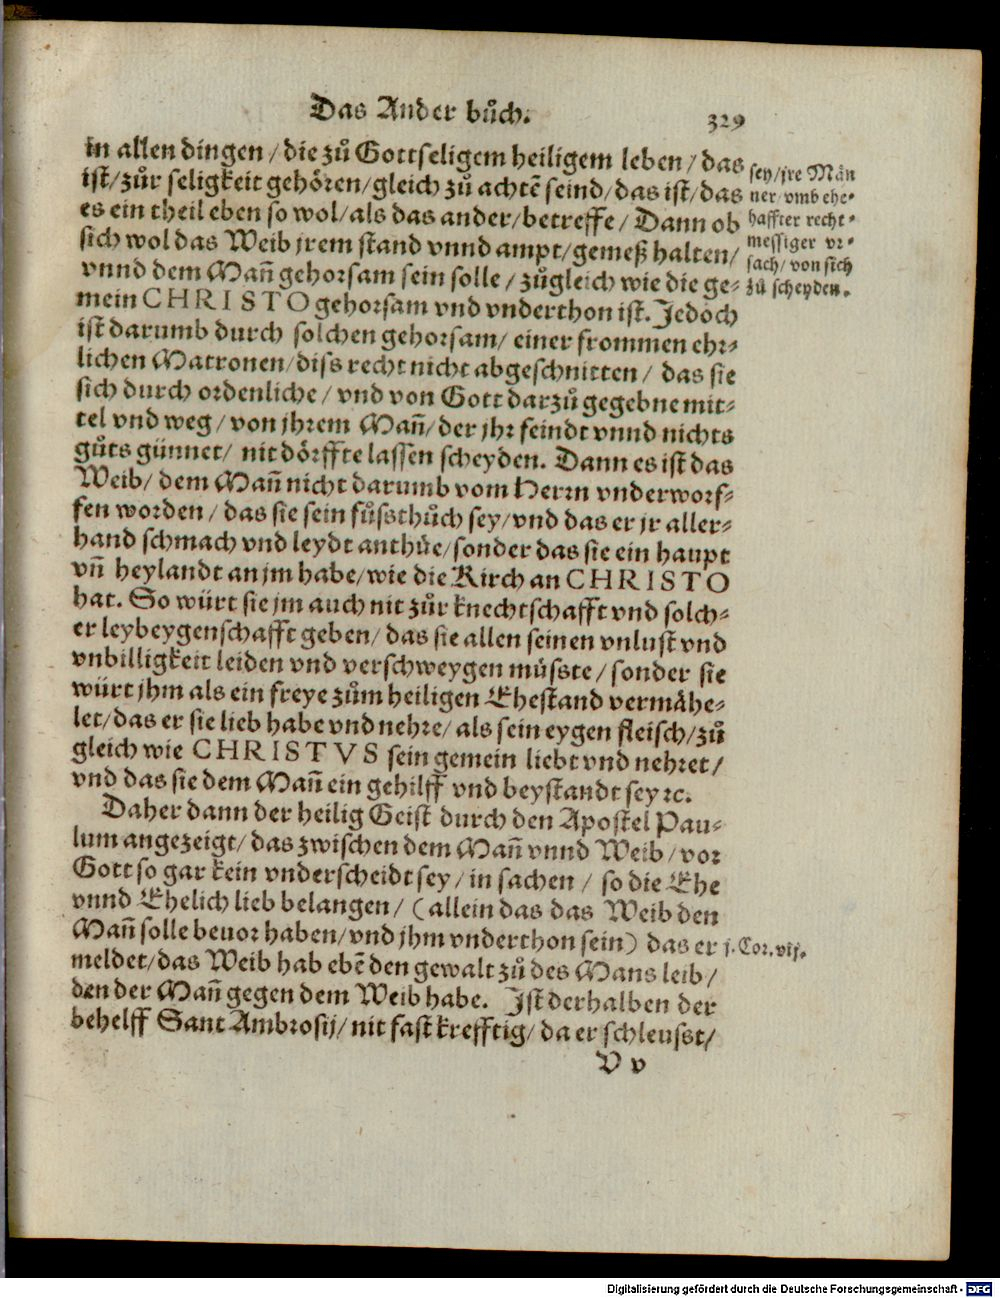 Das Ander bůch.
329
in allen dingen / die zů Gottseligem heiligem leben / das
ist / zůr seligkeit gehören / gleich zů achtẽ seind / das ist / das
es ein theil eben so wol / als das ander / betreffe / Dann ob
sich wol das Weib jrem stand vnnd ampt / gemeß halten /
vnnd dem Mañ gehorsam sein solle / zůgleich wie die ge-
mein CHRISTO gehorsam vnd vnderthon ist. Jedoch
ist darumb durch solchen gehorsam / einer frommen ehr-
lichen Matronen / diss recht nicht abgeschnitten / das sie
sich durch ordenliche / vnd von Gott darzů gegebne mit-
tel vnd weg / von jhrem Mañ / der jhr feindt vnnd nichts
gůts günnet / nit dörffte lassen scheyden. Dann es ist das
Weib / dem Mañ nicht darumb vom Herrn vnderworf-
fen worden / das sie sein fůssthůch sey / vnd das er jr aller-
hand schmach vnd leydt anthüe / sonder das sie ein haupt
vñ heylandt an jm habe / wie die Kirch an CHRISTO
hat. So würt sie jm auch nit zůr knechtschafft vnd solch-
er leybeygenschafft geben / das sie allen seinen vnlust vnd
vnbilligkeit leiden vnd verschweygen müsste / sonder sie
würt jhm als ein freye zům heiligen Ehestand vermähe-
let / das er sie lieb habe vnd nehre / als sein eygen fleisch / zů
gleich wie CHRISTVS sein gemein liebt vnd nehret /
vnd das sie dem Mañ ein gehilff vnd beystandt sey ꝛc.
Daher dann der heilig Geist durch den Apostel Pau-
lum angezeigt / das zwischen dem Mañ vnnd Weib / vor
Gott so gar kein vnderscheidt sey / in sachen / so die Ehe
vnnd Ehelich lieb belangen / (allein das das Weib den
Mañ solle beuor haben / vnd jhm vnderthon sein) das er
meldet / das Weib hab ebẽ den gewalt zů des Mans leib /
den der Mañ gegen dem Weib habe. Ist derhalben der
behelff Sant Ambrosij / nit fast krefftig / da er schleusst /
V v
sey / jre Män
ner / vmb ehe-
haffter recht-
messiger vr-
sach / von sich
zů scheyden.
j. Cor. vij.
Digitalisierung gefördert durch die Deutsche Forschungsgemeinschaft - DFG